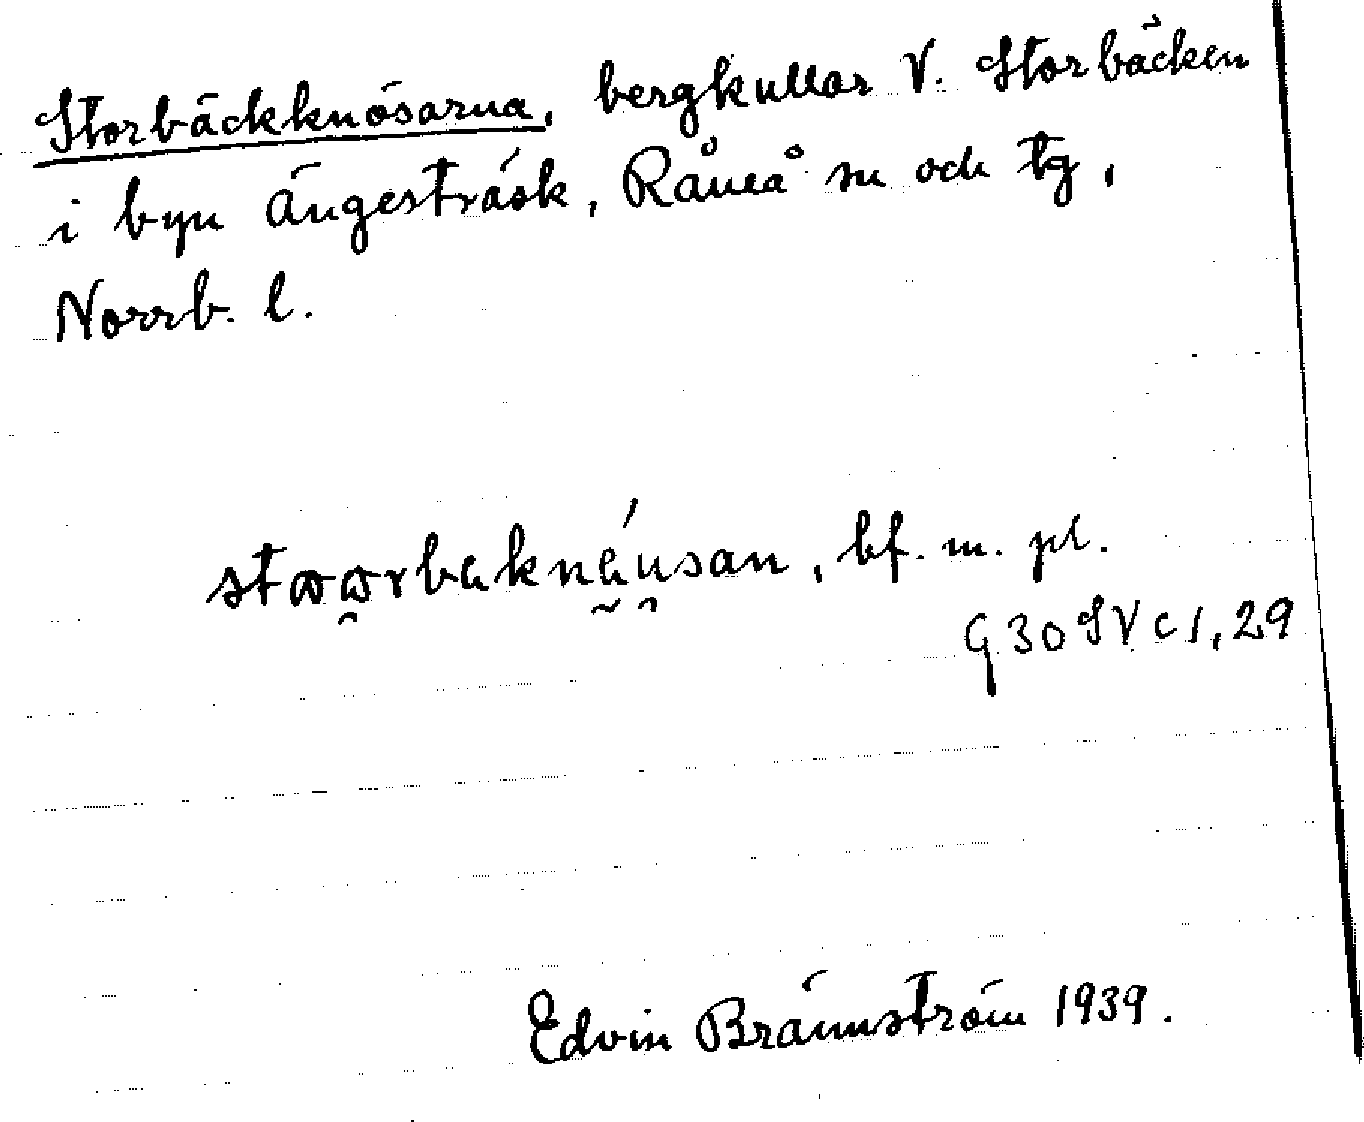 Storbäckknösarna, bergkullar V. Storbäcken
i byn Ängesträsk, Råneå sn och tg,
Norrb. l.
bf. m. pl.
G 30 SV c 1, 29
Edvin Brännström 1939.